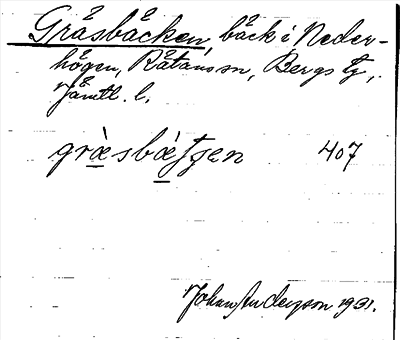 Gräsbäcken, bäck i Neder-
högen, Råtans sn, Bergs tg,
Jämtl. l.
græ̀sbæ̀ʃʃen 407
Johan Anderson 1931.